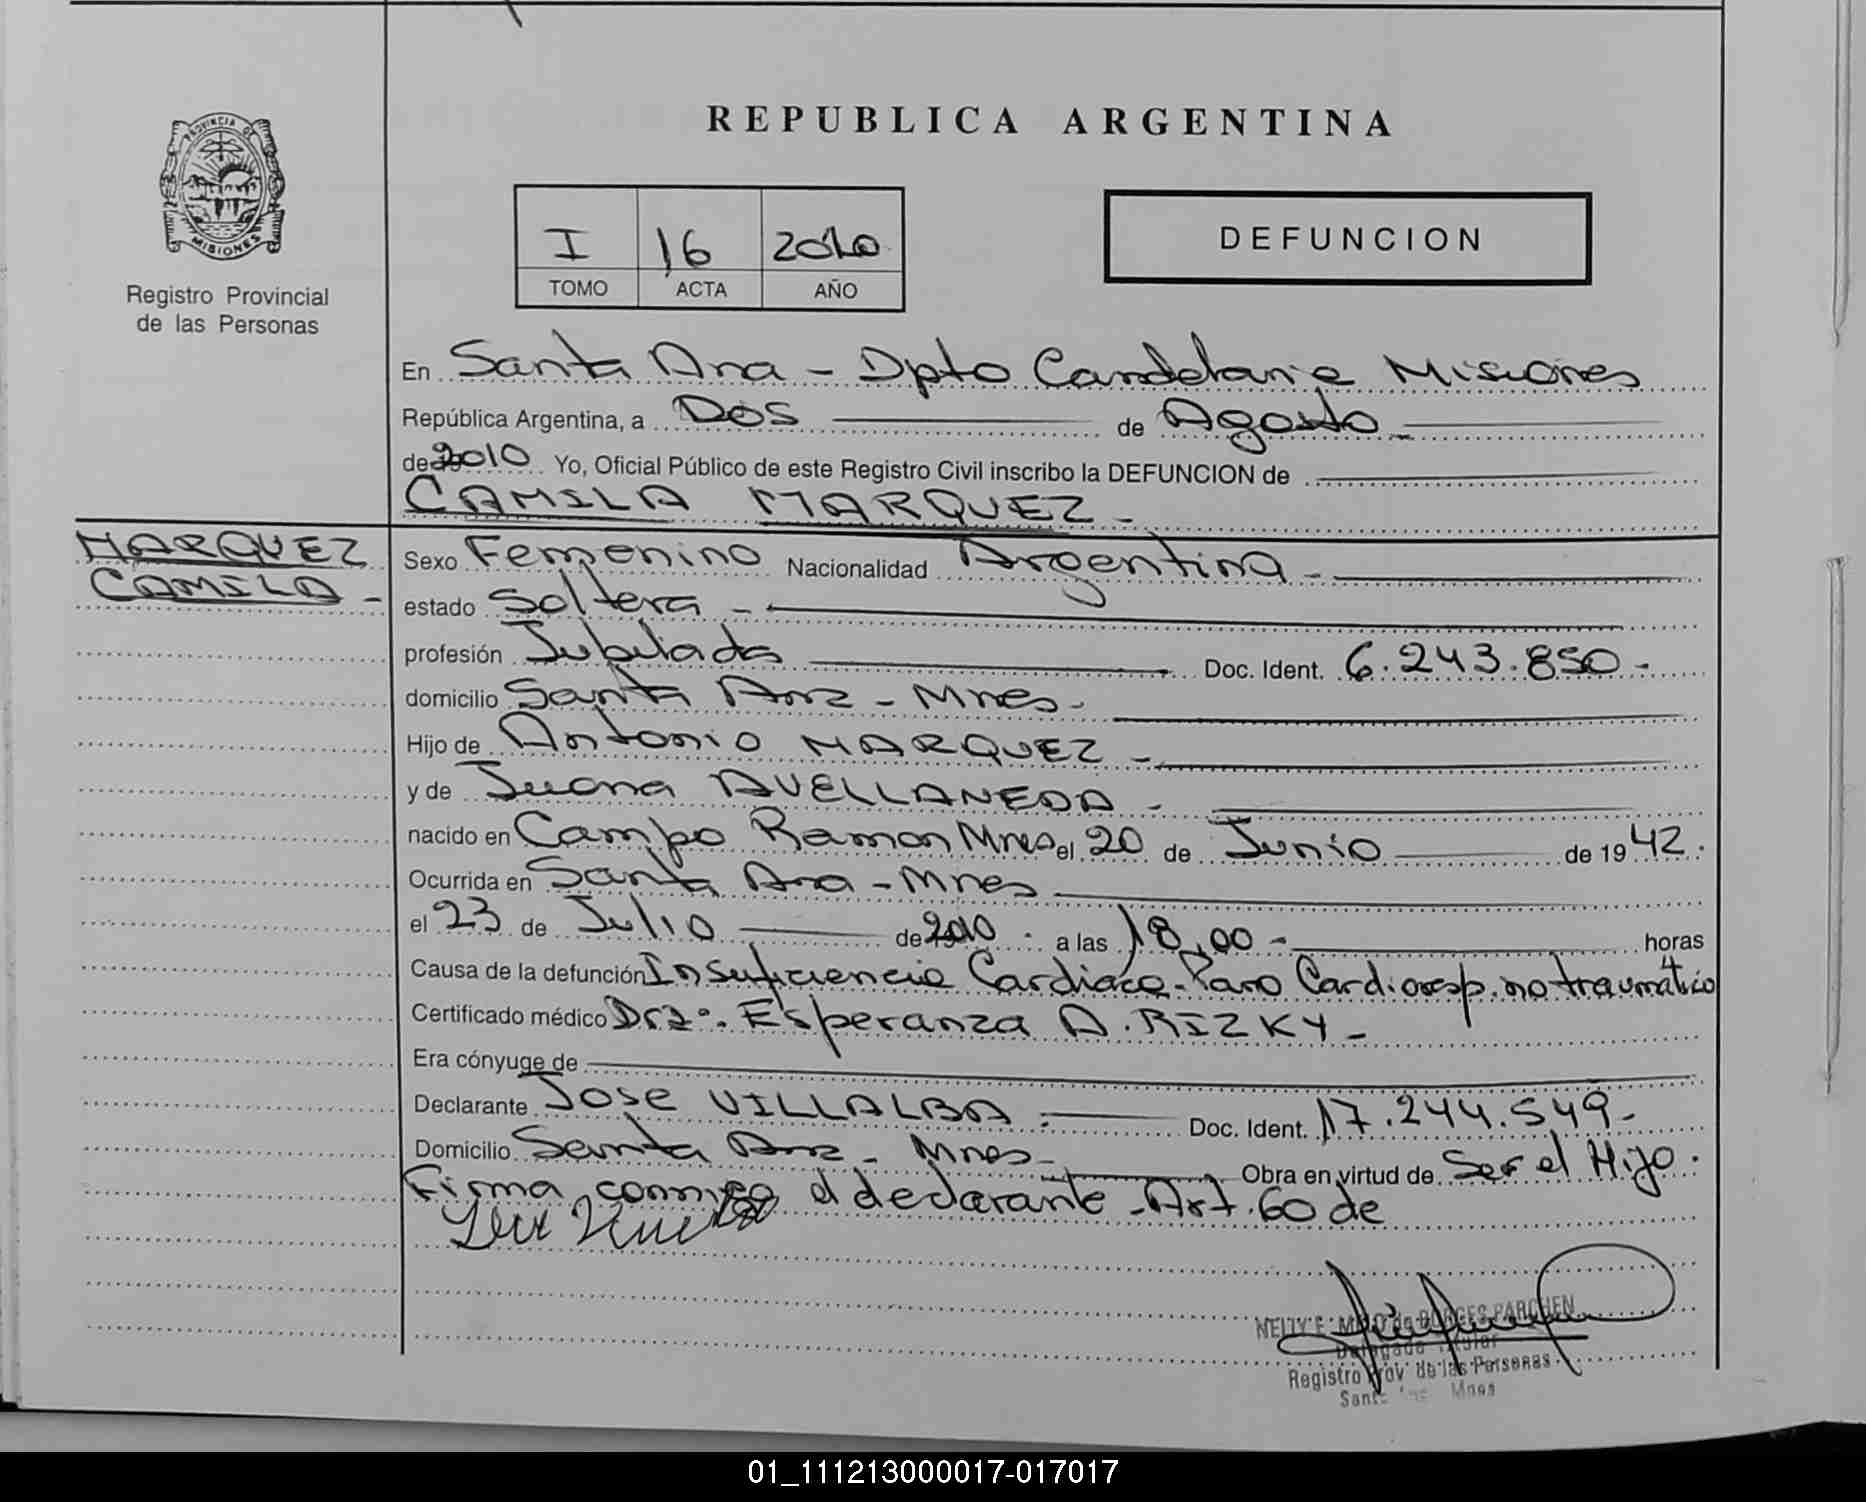 REPUBLICA ARGENTINA
PROVINCIA DE
MISIONES
Registro Provincial
de las Personas
I 16 2010
TOMO ACTA AÑO
DEFUNCION
En Santa Ana - Dpto Candelaria Misiones
República Argentina, a Dos de Agosto
de 2010 Yo, Oficial Público de este Registro Civil inscribo la DEFUNCION de
CAMILA MARQUEZ -
MARQUEZ
CAMILA -
Sexo Femenino Nacionalidad Argentina -
estado Soltera -
profesión Jubilada Doc. Ident. 6.243.850 -
domicilio Santa Ana - Mnes -
Hijo de Antonio MARQUEZ -
y de Juana AVELLANEDA -
nacido en Campo Ramon Mnes el 20 de Junio de 1942.
Ocurrida en Santa Ana - Mnes
el 23 de Julio de 2010 a las 18,00 - horas
Causa de la defunción Insuficiencia Cardiaca - Paro Cardioresp. no traumático
Certificado médico Dra. Esperanza A. RIZKY -
Era cónyuge de
Declarante Jose VILLALBA. Doc. Ident. 17.244.549 -
Domicilio Santa Ana - Mnes - Obra en virtud de Ser el Hijo.
Firma conmigo el declarante - Art. 60 de
NELLY E. de BORGES PARCHEN
Delegada Titular
Registro Prov de las Personas
Santa Ana Mnes
01_111213000017-017017